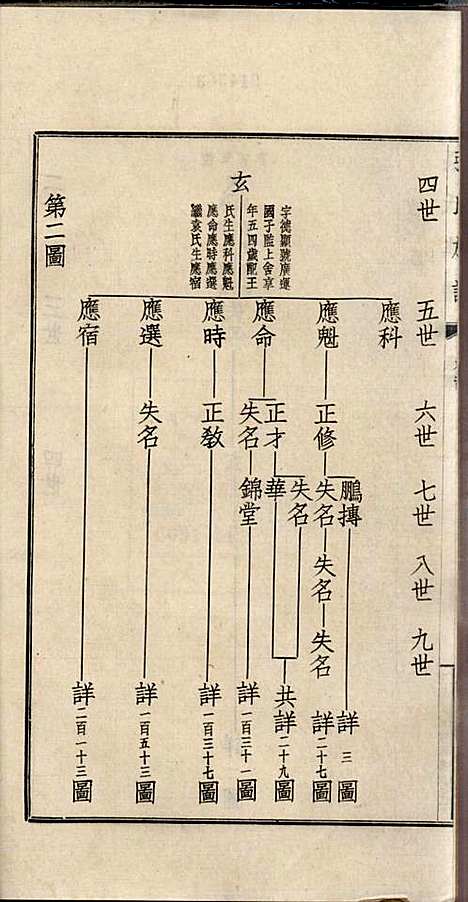 四世 五世 六世 七世 八世 九世
玄
字德顯號廣運
國子監上舍享
年五四歲配王
氏生應科應魁
應命應時應選
繼袁氏生應宿
應科
鵬摶 詳三圖
應魁 正修 失名 失名 失名 詳二十七圖
失名
應命 正才 華 共詳二十九圖
失名 錦堂 詳一百三十一圖
應時 正教 詳一百三十七圖
應選 失名 詳一百五十三圖
應宿 詳二百一十三圖
第二圖